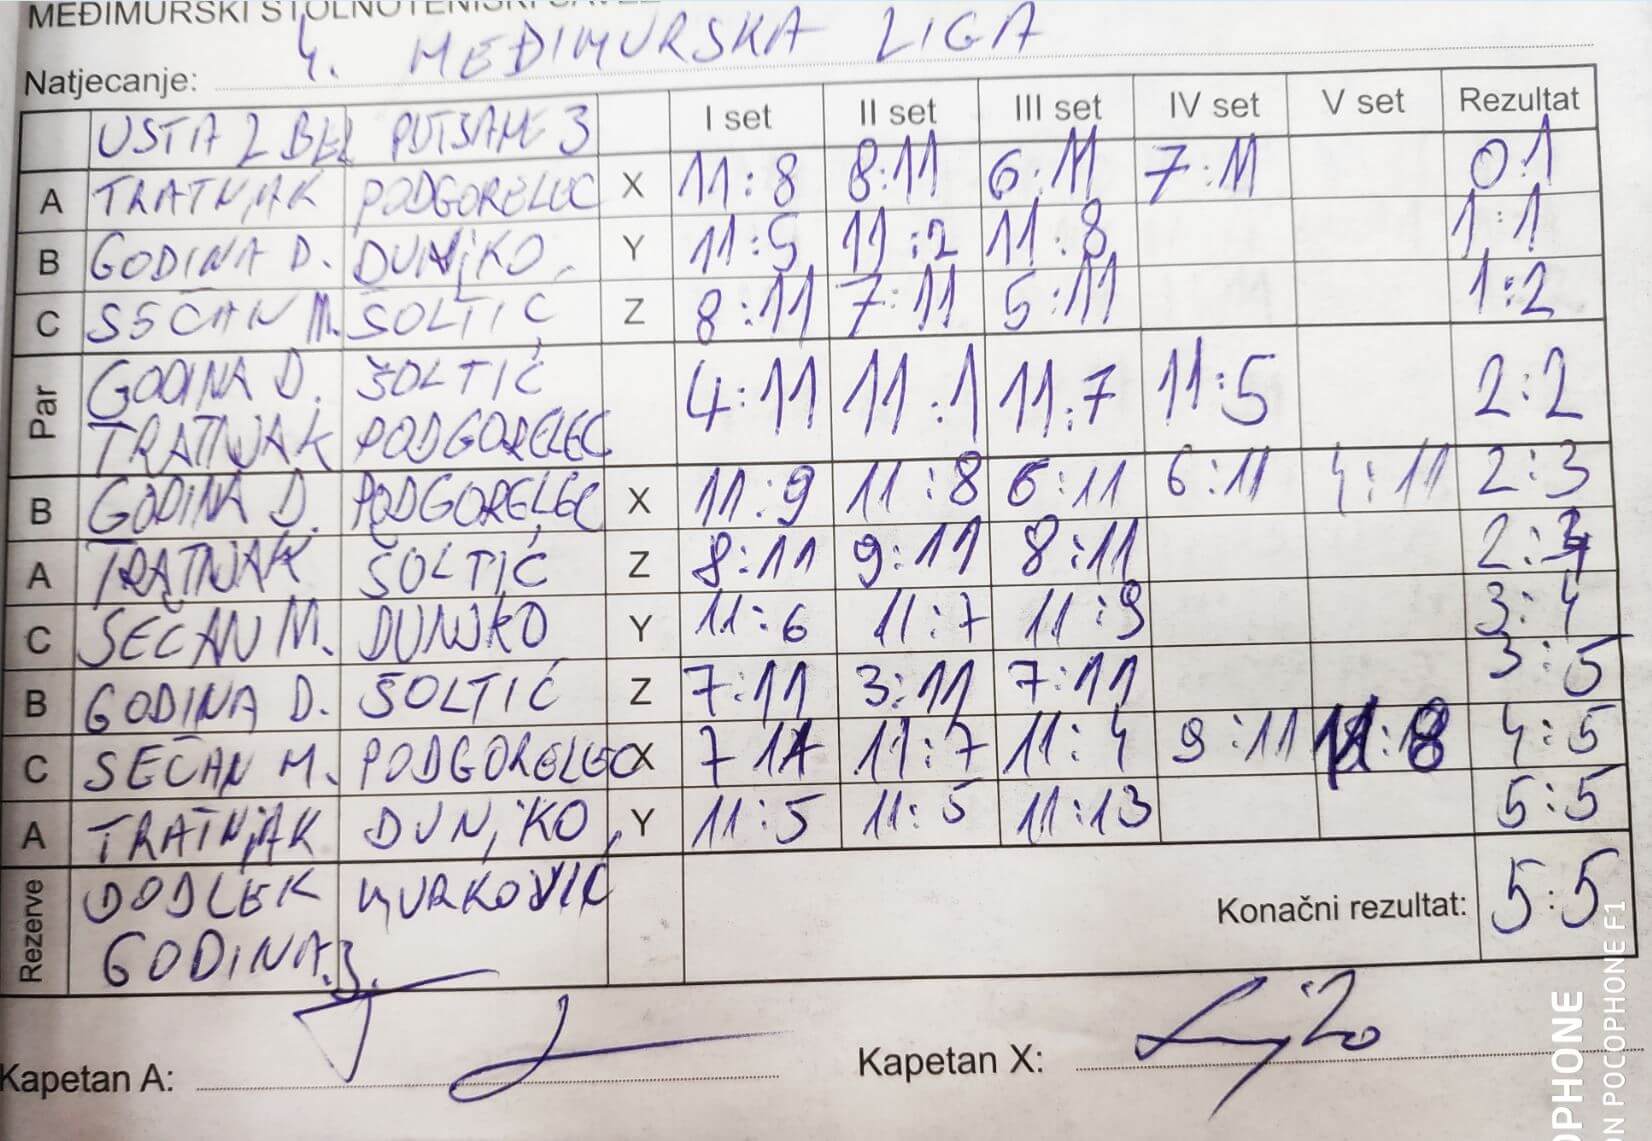 MEĐIMURSKI STOLNOTENISKI SAVEZ
Natjecanje: 4. MEĐIMURSKA LIGA
USTA 2 BEL PUTJANE 3 I set II set III set IV set V set Rezultat
A TRATNJAK PODGORELEC X 11:8 8:11 6:11 7:11 0:1
B GODINA D. DUNJKO Y 11:5 11:2 11:8 1:1
C SEČAN M. ŠOLTIĆ Z 8:11 7:11 5:11 1:2
Par GODINA D. ŠOLTIĆ 4:11 11:1 11:7 11:5 2:2
TRATNJAK PODGORELEC
B GODINA D. PODGORELEC X 11:9 11:8 6:11 6:11 4:11 2:3
A TRATNJAK ŠOLTIĆ Z 8:11 9:11 8:11 2:4
C SEČAN M. DUNJKO Y 11:6 11:7 11:9 3:4
B GODINA D. ŠOLTIĆ Z 7:11 3:11 7:11 3:5
C SEČAN M. PODGORELEC X 7 11 11:7 11:4 9:11 11:8 4:5
A TRATNJAK DUNJKO Y 11:5 11:5 11:13 5:5
Rezerve DODLEK
GODINA Z. Konačni rezultat: 5:5
Kapetan A: Kapetan X:
OPHONE
ON POCOPHONE F1